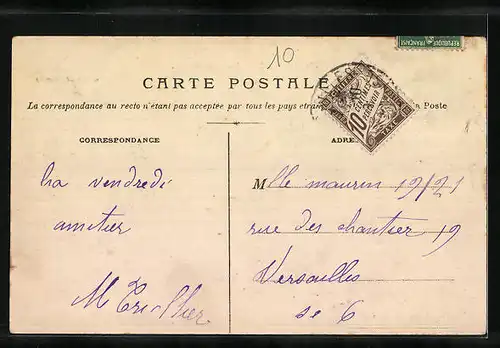 10
CARTE POSTALE
La correspondance au recto n'étant pas acceptée par tous les pays étran Poste
CORRESPONDANCE
ADRE
La vendredi
amitier
Mlle maurin 19/21
rue des chantier 19
Versailles
se 6
10 CENTIMES À PERCEVOIR
TAXE
REPUBLIQUE FRANÇAISE